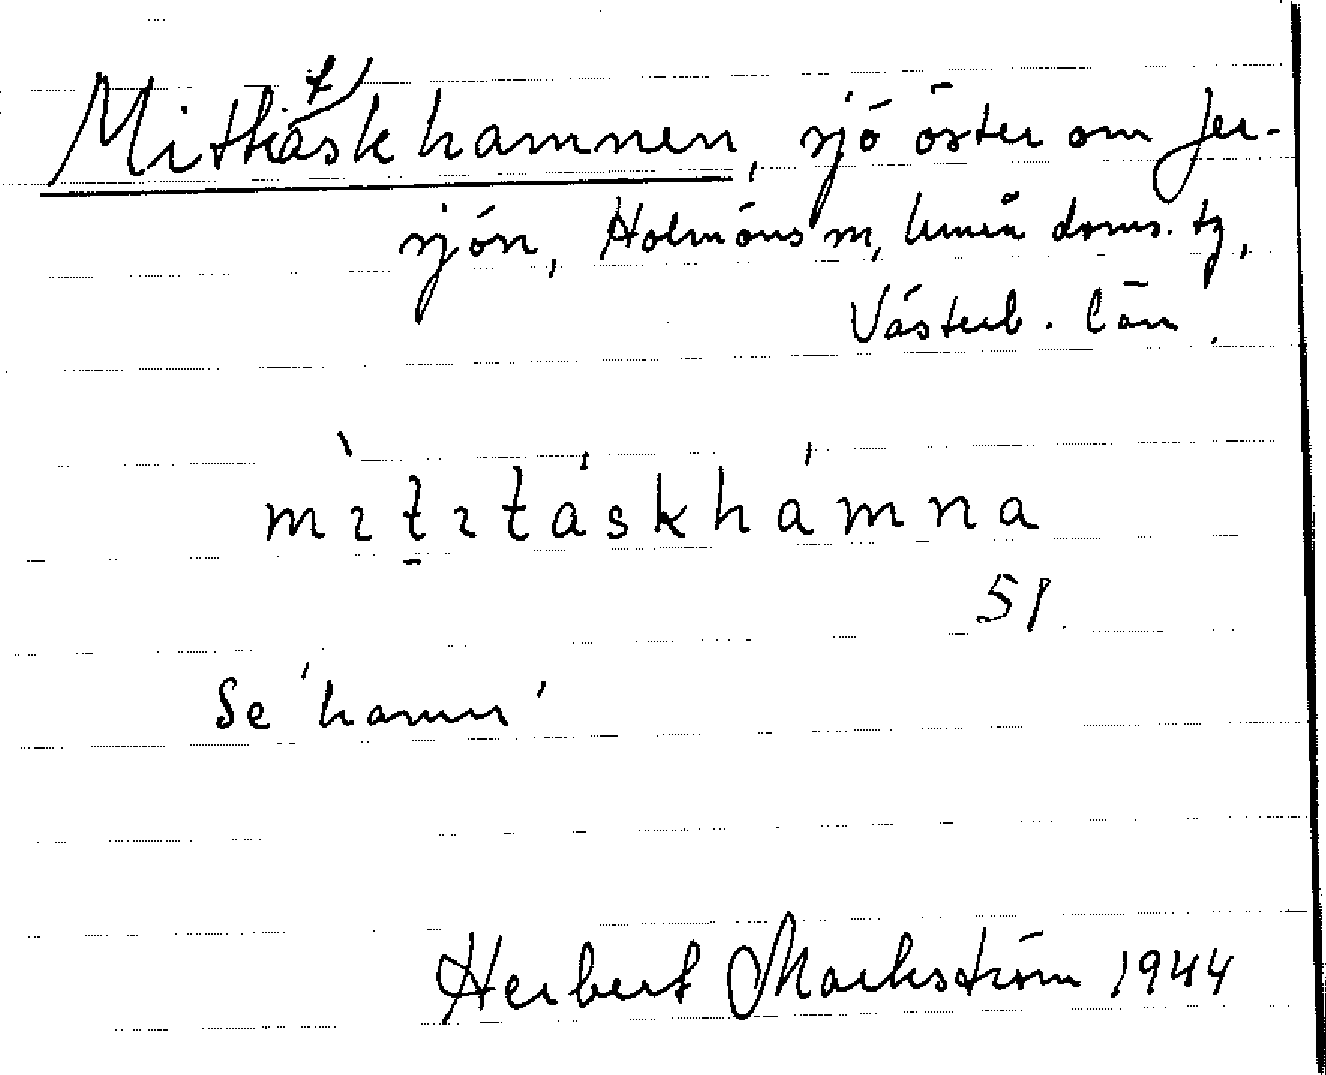 Mittitäskhamnen, sjö öster om Jer-
sjön, Holmöns sn, Umeå doms. tg,
Västerb. län.
mìtitáskhámna
51.
Se 'hamn'
Herbert Markström 1944